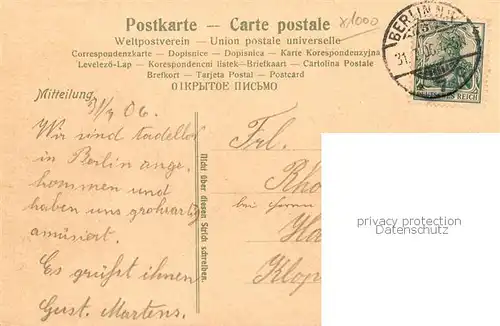 Postkarte — Carte postale
x1000
Weltpostverein — Union postale universelle
Correspondenzkarte — Dopisnice — Karta Korespondenzyjna
Levelező-Lap — Korespondencni listek—Briefkaart — Cartolina Postale
Brefkort — Tarjeta Postal — Postcard
ОТКРЫТОЕ ПИСЬМО
BERLIN N.W.
31.
DEUTSCHES REICH
Mitteilung
31/7 06.
Wir sind tadellos
in Berlin ange-
kommen und
haben uns großartig
amüsiert.
Es grüßt ihnen
Gust. Martens.
Nicht über diesen Strich schreiben.
Frl.
Rho
bei Herrn
Ha
Klop
privacy protection
Datenschutz